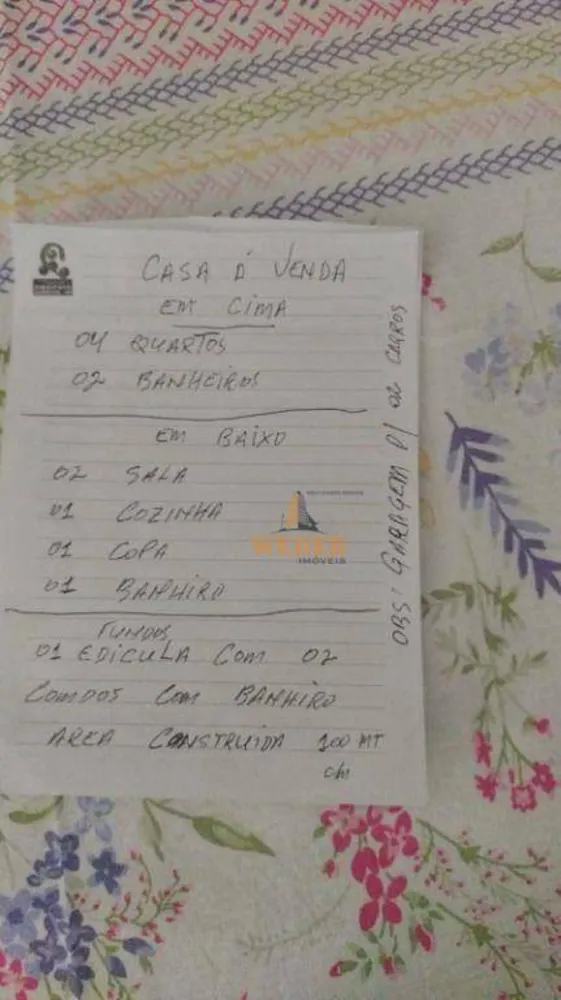 CASA Á VENDA
EM CIMA
04 QUARTOS
02 BANHEIROS
EM BAIXO
02 SALA
01 COZINHA
01 COPA
01 BANHIRO
FUNDOS
01 EDICULA COM 02
COMDOS COM BANHIRO
AREA CONSTRUIDA 200 MT
OBS: GARAGEM P/ 02 CARROS
WEBER
IMÓVEIS